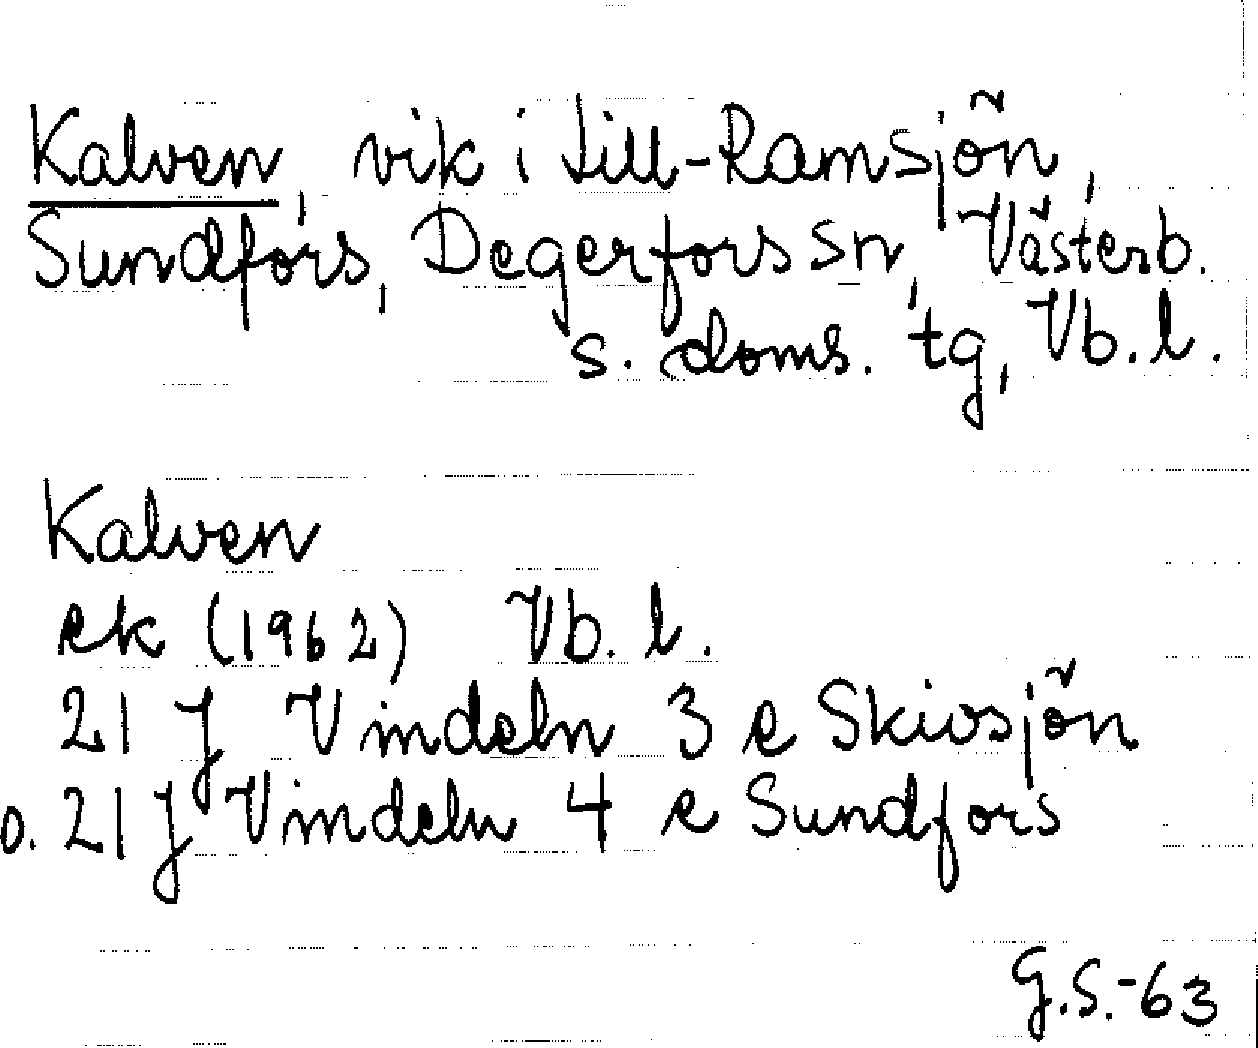 Kalven, vik i Lill-Ramsjön,
Sundfors, Degerfors sn, Västerb.
s. doms. tg, Vb. l.
Kalven
ek (1962) Vb. l.
21 J Vindeln 3 e Skivsjön
o. 21 J Vindeln 4 e Sundfors
G.S.-63